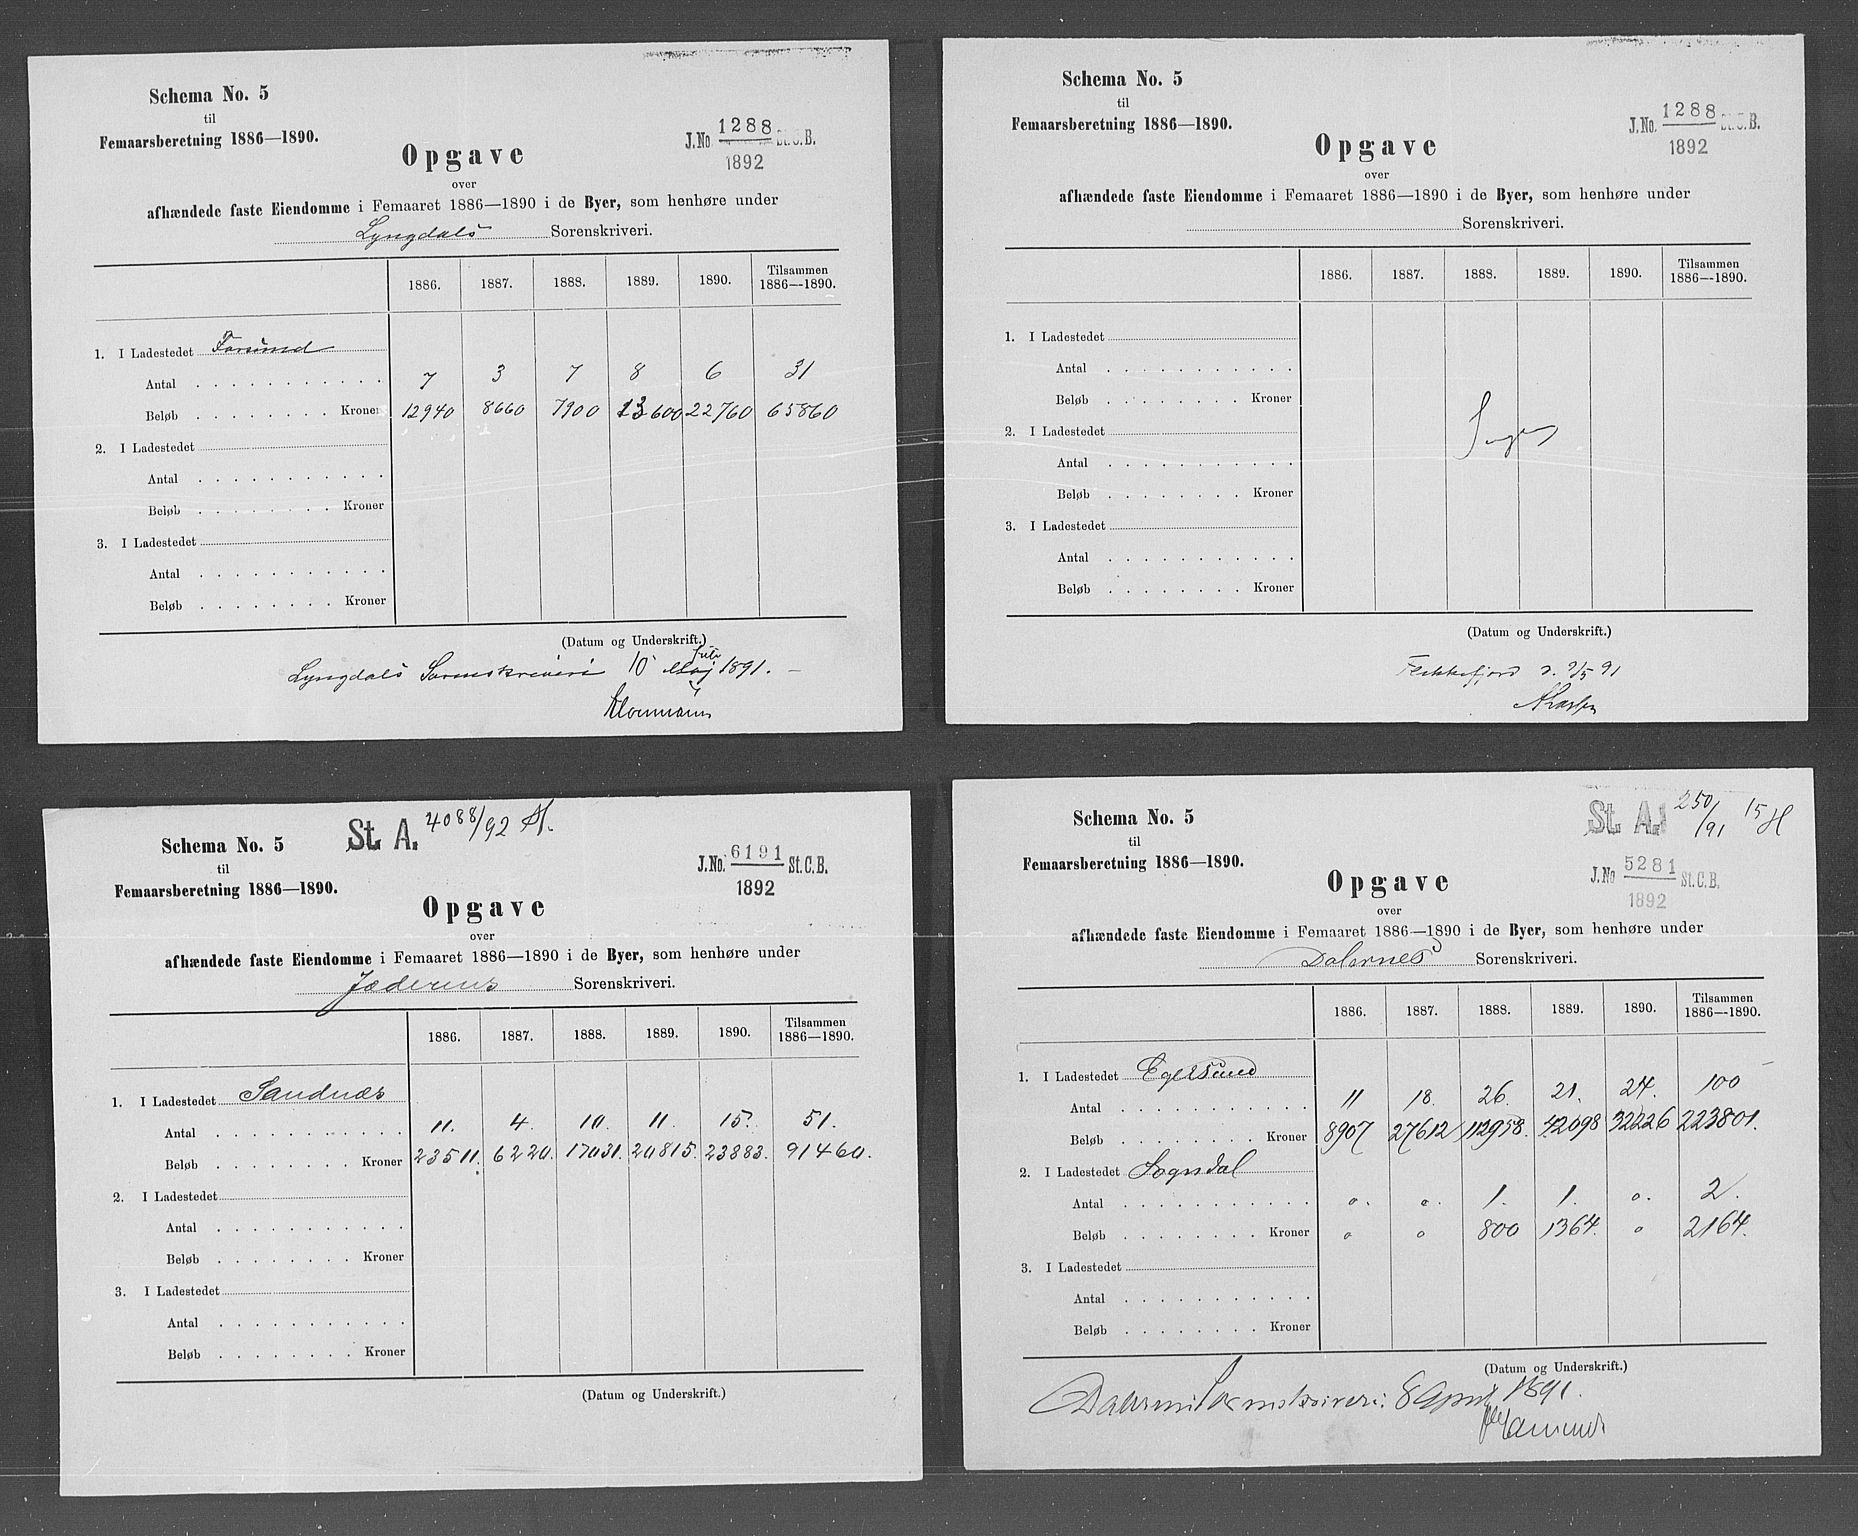 Schema No. 5
til
Femaarsberetning 1886—1890.
J. No. 1288 St. C. B.
1892
Opgave
over
afhændede faste Eiendomme i Femaaret 1886—1890 i de Byer, som henhøre under
Lyngdals Sorenskriveri.
1886. 1887. 1888. 1889. 1890. Tilsammen 1886—1890.
1. I Ladestedet Farsund
Antal 7 3 7 8 6 31
Beløb Kroner 12940 8660 7900 13600 22760 65860
2. I Ladestedet
Antal
Beløb Kroner
3. I Ladestedet
Antal
Beløb Kroner
(Datum og Underskrift.)
Lyngdals Sorenskriveri 10 Maj 1891.
Schema No. 5
til
Femaarsberetning 1886—1890.
J. No. 1288 St. C. B.
1892
Opgave
over
afhændede faste Eiendomme i Femaaret 1886—1890 i de Byer, som henhøre under
Sorenskriveri.
1886. 1887. 1888. 1889. 1890. Tilsammen 1886—1890.
1. I Ladestedet
Antal
Beløb Kroner
2. I Ladestedet
Ingen
Antal
Beløb Kroner
3. I Ladestedet
Antal
Beløb Kroner
(Datum og Underskrift.)
Flekkefjord d. 2/5 91
St. A. 4088/92
Schema No. 5
til
Femaarsberetning 1886—1890.
J. No. 6191 St. C. B.
1892
Opgave
over
afhændede faste Eiendomme i Femaaret 1886—1890 i de Byer, som henhøre under
Jæderens Sorenskriveri.
1886. 1887. 1888. 1889. 1890. Tilsammen 1886—1890.
1. I Ladestedet Sandnæs
Antal 11. 4. 10. 11. 15. 51.
Beløb Kroner 23511. 6220. 17031. 20815. 23883. 91460.
2. I Ladestedet
Antal
Beløb Kroner
3. I Ladestedet
Antal
Beløb Kroner
(Datum og Underskrift.)
St. A. 250/91 15
Schema No. 5
til
Femaarsberetning 1886—1890.
J. No 5281 St. C. B.
1892
Opgave
over
afhændede faste Eiendomme i Femaaret 1886—1890 i de Byer, som henhøre under
Dalernes Sorenskriveri.
1886. 1887. 1888. 1889. 1890. Tilsammen 1886—1890.
1. I Ladestedet Egersund
Antal 11 18. 26. 21. 24. 100
Beløb Kroner 8907 27612 112958. 42098 32226 223801.
2. I Ladestedet Sogndal
Antal o. o. 1. 1. o. 2.
Beløb Kroner o o 800 1364. o 2164.
3. I Ladestedet
Antal
Beløb Kroner
(Datum og Underskrift.)
Dalernes Sorenskriveri. 8 April 1891.